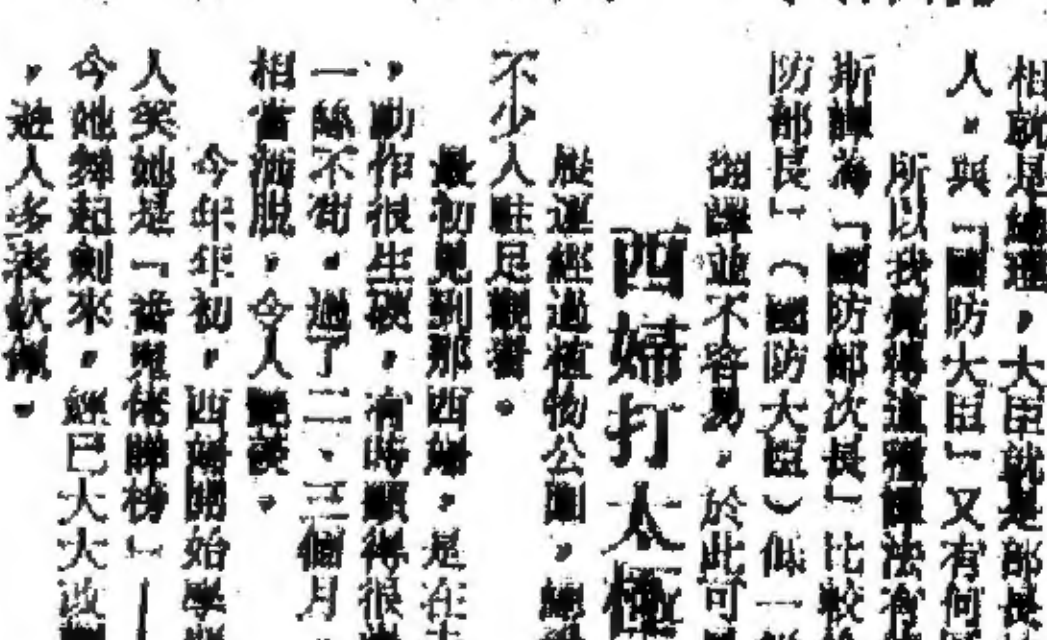 相就是總理，大臣就是部長
人。與「國防大臣」又有何
所以我覺得這種譯法有
斯譯為「國防部次長」比較
防部長」（國防大臣）低一
翻譯並不容易，於此可
西婦打太極
晨運經過植物公園，總
不少人駐足觀看。
最初見到那西婦，是在
，動作很生硬，有時顯得很
一絲不苟。過了二、三個月，
相當洒脫，令人
今年年初，西婦開始學
人笑她是「番鬼佬睇榜」—
今她舞起劍來，經已大大改
，遊人多表欽佩。